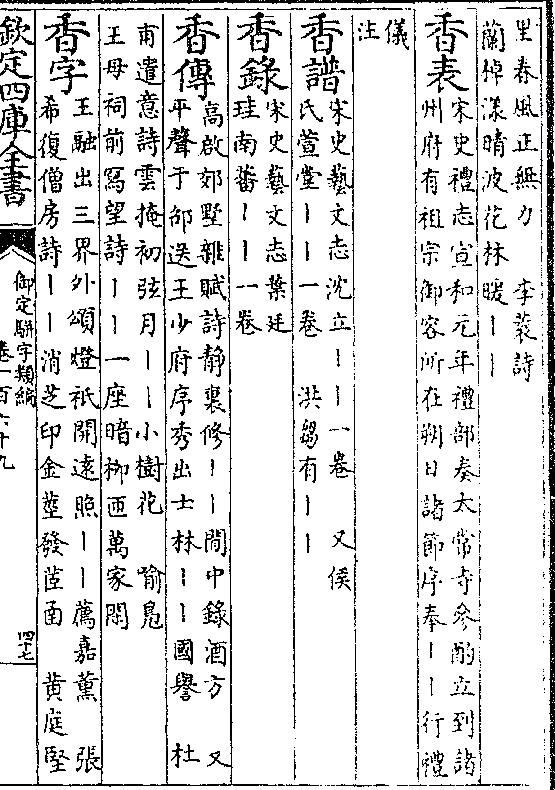 里春風正無力　李裘詩
蘭棹漾晴波花林暖丨丨
香表
宋史禮志宣和元年禮部奏太常寺參酌立到諸
州府有祖宗御容所在朔日諸節序奉丨丨行禮
儀
注
香譜
宋史藝文志沈立丨丨一卷　又侯
氏萱堂丨丨一卷　洪芻有丨丨
香錄
宋史藝文志葉廷
珪南番丨丨一卷
香傳
高啟郊墅雜賦詩靜裏修丨丨閒中錄酒方　又
平聲于邵送王少府序秀出士林丨丨國譽　杜
甫遣意詩雲掩初弦月丨丨小樹花　喻鳧
王母祠前寫望詩丨丨一座暗柳匝萬家閒
香字
王融出三界外頌燈祇開遠照丨丨薦嘉薰　張
希復僧房詩丨丨消芝印金莖發茝函　黄庭堅
欽定四庫全書
御定駢字類編
卷一百六十九
四十七